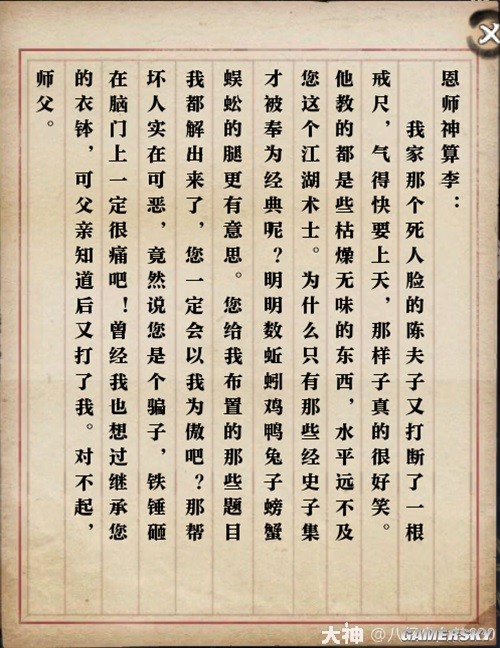 恩师神算李：
我家那个死人脸的陈夫子又打断了一根
戒尺，气得快要上天，那样子真的很好笑。
他教的都是些枯燥无味的东西，水平远不及
您这个江湖术士。为什么只有那些经史子集
才被奉为经典呢？明明数蚯蚓鸡鸭兔子螃蟹
蜈蚣的腿更有意思。您给我布置的那些题目
我都解出来了，您一定会以我为傲吧？那帮
坏人实在可恶，竟然说您是个骗子，铁锤砸
在脑门上一定很痛吧！曾经我也想过继承您
的衣钵，可父亲知道后又打了我。对不起，
师父。
大神
GAMERSKY